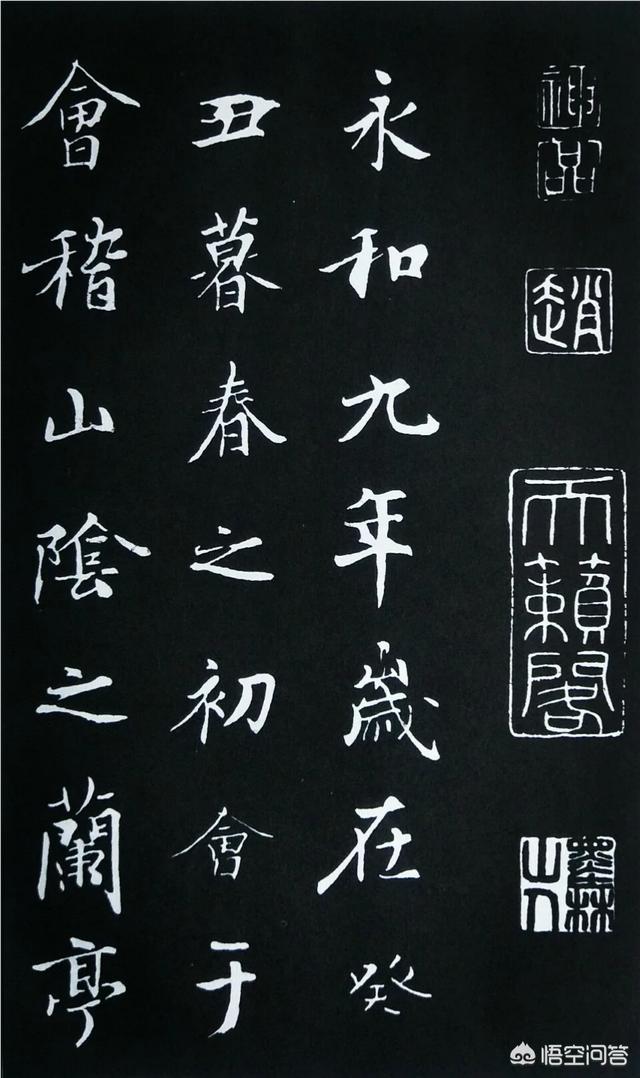 神品
趙
天籟閣
墨林山人
永和九年歲在癸
丑暮春之初會于
會稽山陰之蘭亭
悟空问答